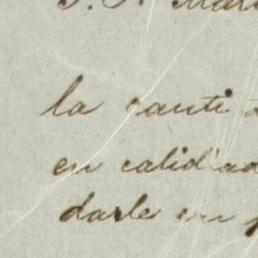 la canti
en calidad
darle en